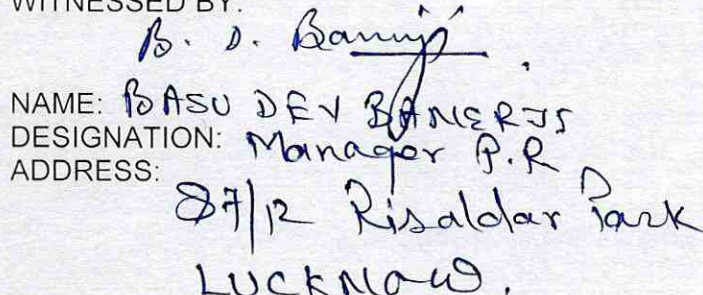 WITNESSED BY:
B. D. Banerji
NAME: BASU DEV BANERJI
DESIGNATION: Manager P.R
ADDRESS:
87/12 Risaldar Park
LUCKNOW.